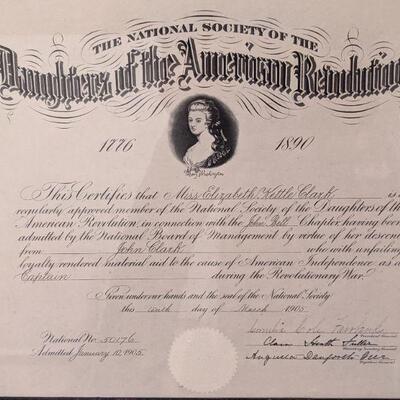 THE NATIONAL SOCIETY OF THE
Daughters of the American Revolution
1776 1890
Mary Washington
This Certifies that Miss Elizabeth Kettle Clark is a
regularly approved member of the National Society of the Daughters of the
American Revolution, in connection with the John Bell Chapter, having been
admitted by the National Board of Management by virtue of her descent
from John Clark who with unfailing
loyalty rendered material aid to the cause of American Independence as a
Captain during the Revolutionary War.
Given under our hands and the seal of the National Society
this day of March 1905
National No. 50176
Admitted January 12, 1905
President General